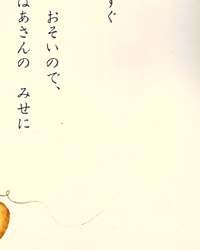 すぐ
おそいので、
ばあさんの　みせに